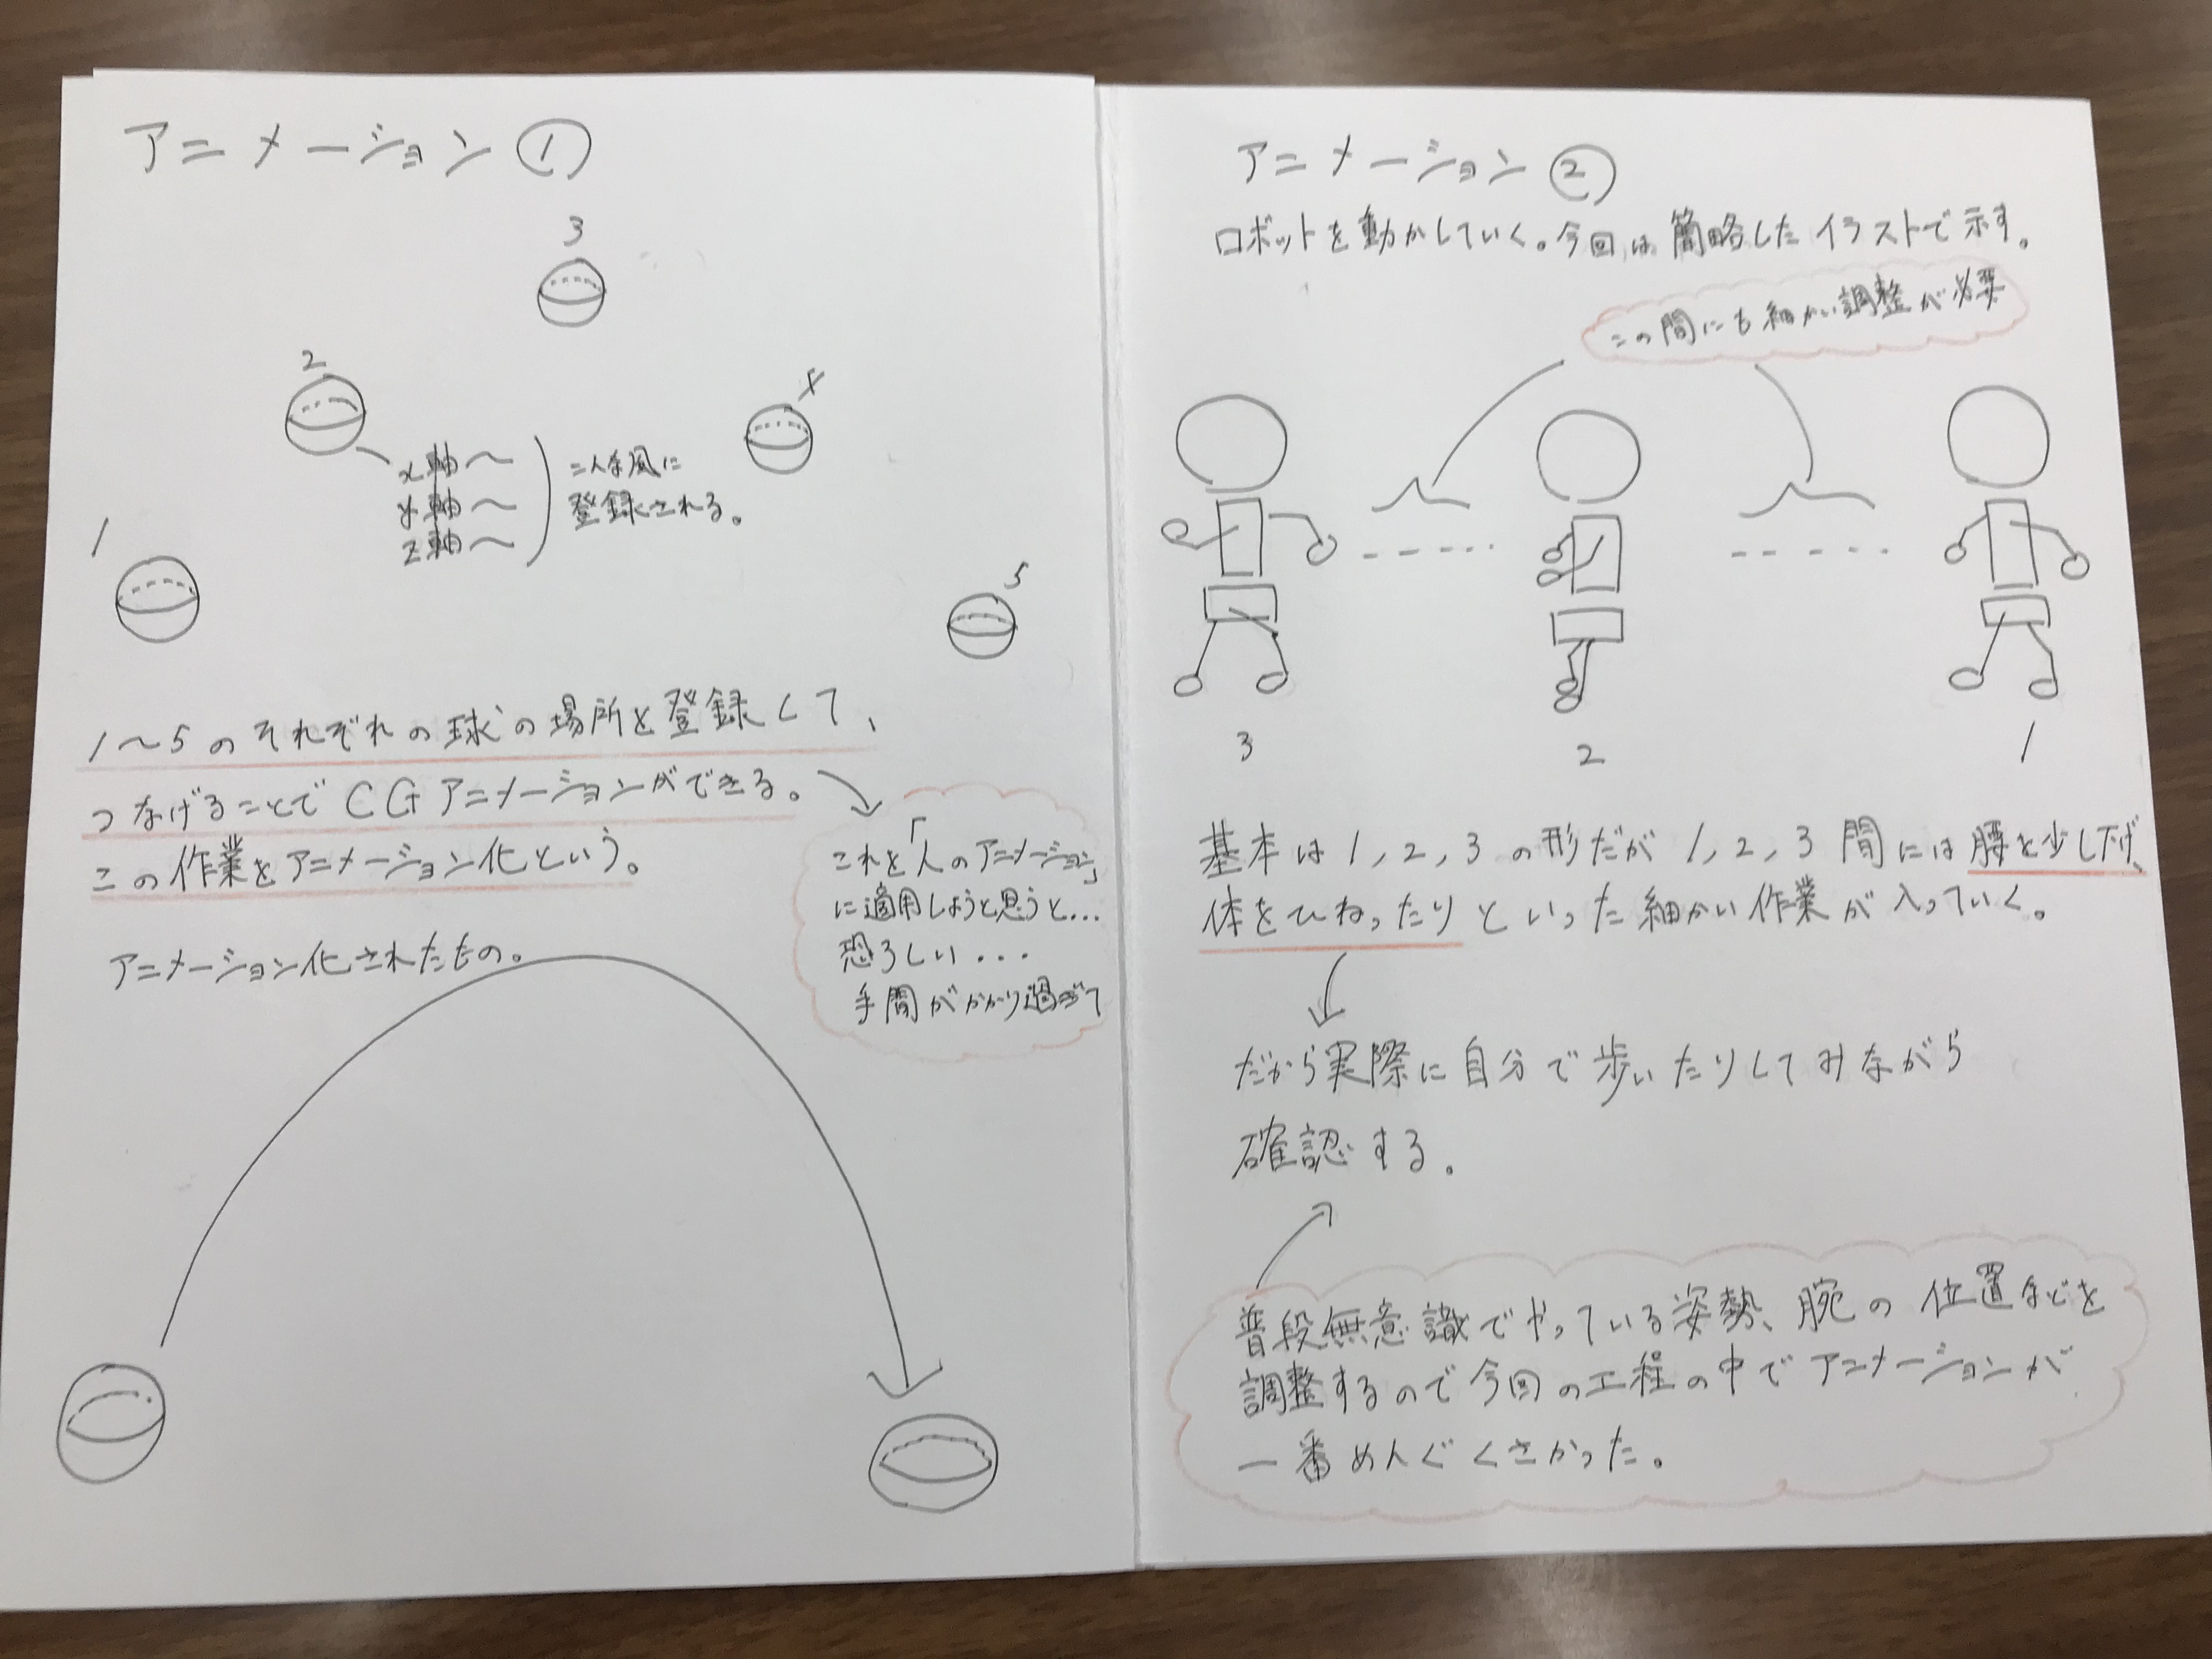 アニメーション ①
3
2
4
x軸〜
y軸〜
z軸〜
こんな風に
登録される。
1
5
1〜5のそれぞれの球の場所を登録して、
つなげることでCGアニメーションができる。
この作業をアニメーション化という。
これを「人のアニメーション」
に適用しようと思うと...
恐ろしい...
手間がかかり過ぎて
アニメーション化されたもの。
アニメーション ②
ロボットを動かしていく。今回は簡略したイラストで示す。
この間にも細かい調整が必要
3
2
1
基本は1,2,3の形だが1,2,3間には腰を少し下げ、
体をひねったりといった細かい作業が入っていく。
だから実際に自分で歩いたりしてみながら
確認する。
普段無意識でやっている姿勢、腕の位置などを
調整するので今回の工程の中でアニメーションが
一番めんどくさかった。